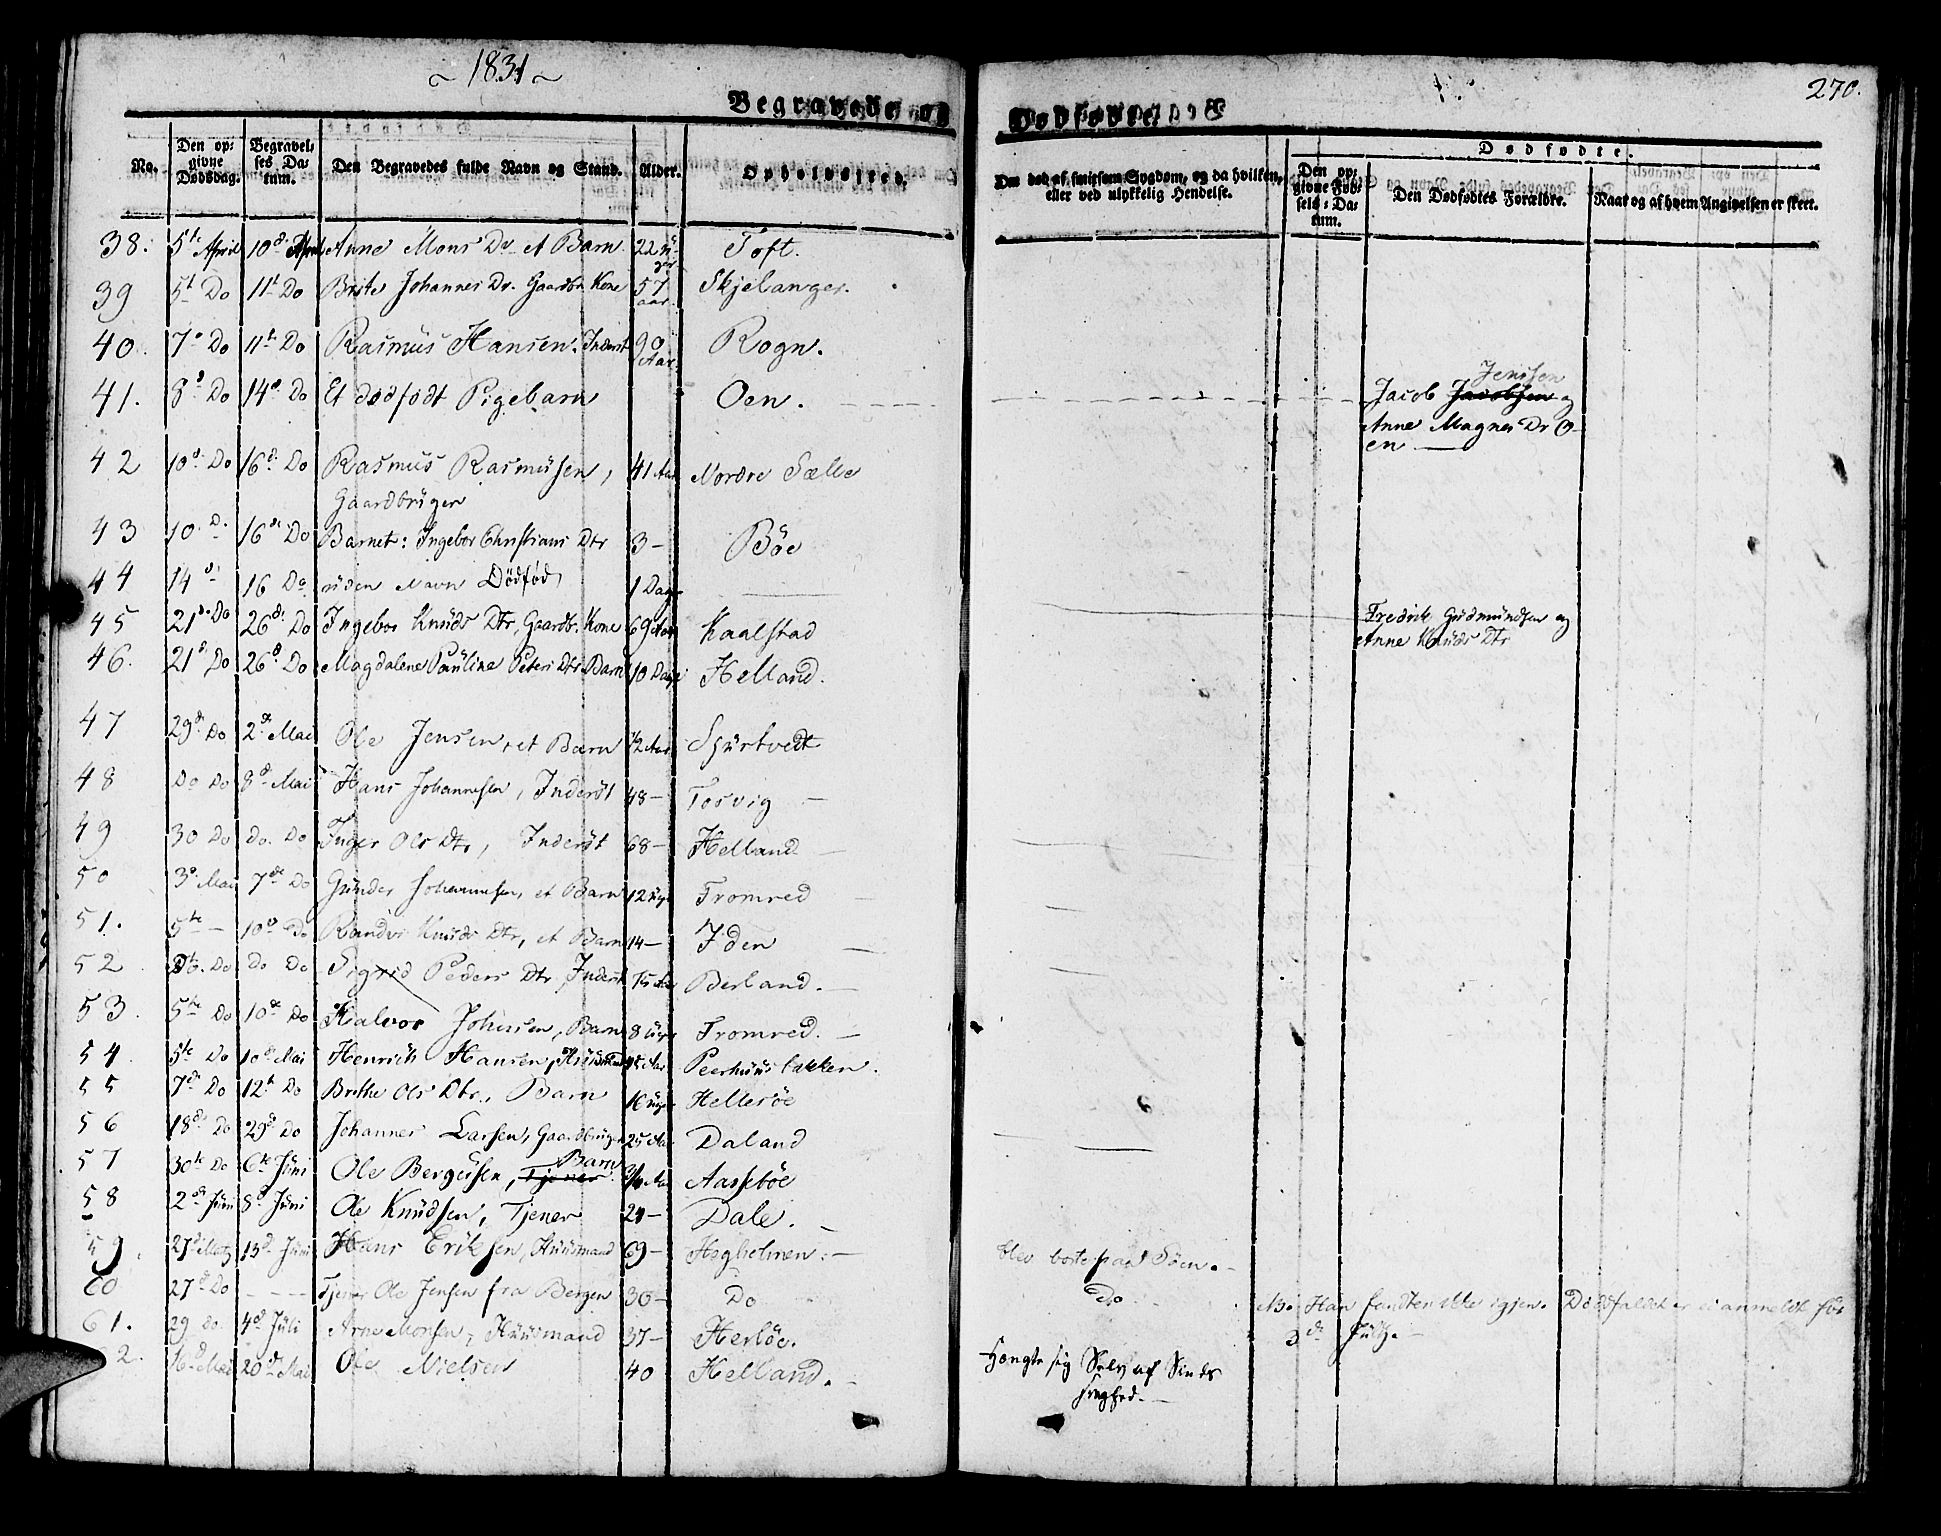 ~ 1831 ~
270.
Begravede og Dødfødte
No. Den opgivne Dødsdag. Begravelses Datum. Den Begravedes fulde Navn og Stand. Alder. Opholdssted. Om død af smitsom Sygdom, og da hvilken, eller ved ulykkelig Hendelse. Dødfødte. Den opgivne Fødsels-Datum. Den Dødfødtes Forældre. Naar og af hvem Angivelsen er skeet.
38. 5te April 10de April Anne Mons Dr et Barn 22 Uger Toft.
39 5te Do 11te Do Brite Johannes Dr. Gaardbr. Kone 57 aar. Skjelanger.
40. 7de Do 11te Do Rasmus Hansen. Inderst 90 Aar. Rogn.
41. 8de Do 14de Do Et dødfødt Pigebarn Oen. Jacob Jacobsen Jenssen og
Anne Magnes Dr O-
en
42 10de Do 16de Do Rasmus Rasmusen, Gaardbruger 41 Aar Nordre Sælle
43 10. D. 16de Do Barnet: Ingebor Christians Dtr 3 - Böe
44 14de 16 Do uden Navn Dödfød, 1 Dag
45 21de Do 26de Do Ingebor Knuds Dtr, Gaardbr. Kone 69 Aar Kaalstad Fredrik Gudmundsen og
Anne Knuds Dtr
46. 21de Do 26de Do Magdalene Pauline Peters Dtr Barn 10 Dage Helland.
47 29de Do 2de Mai Ole Jensen, et Barn 1/2 Aar Spurtvedt
48 Do Do 8de Mai Hans Johannesen, Inderst 48 - Tosvig -
49 30 Do Do. Do Inger Ols Dtr, Inderst 68 - Helland -
50 3de Mai 7de Do Gunder Johannesen, et Barn 12 Uger Fromred
51. 5te - 10de Do Randvi Knuds Dtr, et Barn 14 - Iden
52. Do. Do Do Do Sigrid Peders Dtr, Inderst 75 Aar Berland. -
53. 5te Do 10de Do Halvor Johnsen, Barn 8 Uger Fromred. -
54. 5te Do 10de Mai Henrich Hansen, Aar Peerhuusbakken.
55 7de Do 12te Do Brithe Ols Dtr., Barn 16 Uger Hellesöe
56 18de Do 29de Do Johannes Larsen, Gaardbruger 25 Aar Daland
57 30te Do 6te Juni Ole Bergesen, Tjener Barn 3/4 Aar Aassebøe
58 2den Juni 8de Juni Ole Knudsen, Tjener 24 - Dale. -
59. 27de Do 13de Juni Hans Eriksen, Huusmand 69 - Hegholmen. - blev borte paa Söen. -
60 27de Do - - - Tjener Ole Jensen fra Bergen 30 - Do Do NB. Han fandtes ikke igjen. Dödsfaldet er ei anmeldt för
3de Julj. -
61. 29 do. 4de Juli Arne Monsen, Huusmand 37 - Herlöe.
62. 16de Mai 20de Mai Ole Nielsen 40 Helland. - Hængte sig Selv af Sinds
svaghed. -